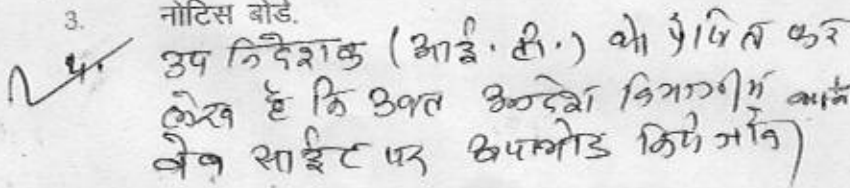 3. नोटिस बोर्ड.
4. उप निदेशक (आई. टी.) को प्रेषित कर
लेख है कि उक्त आदेश विभागीय
वेब साईट पर अपलोड किये जावे।